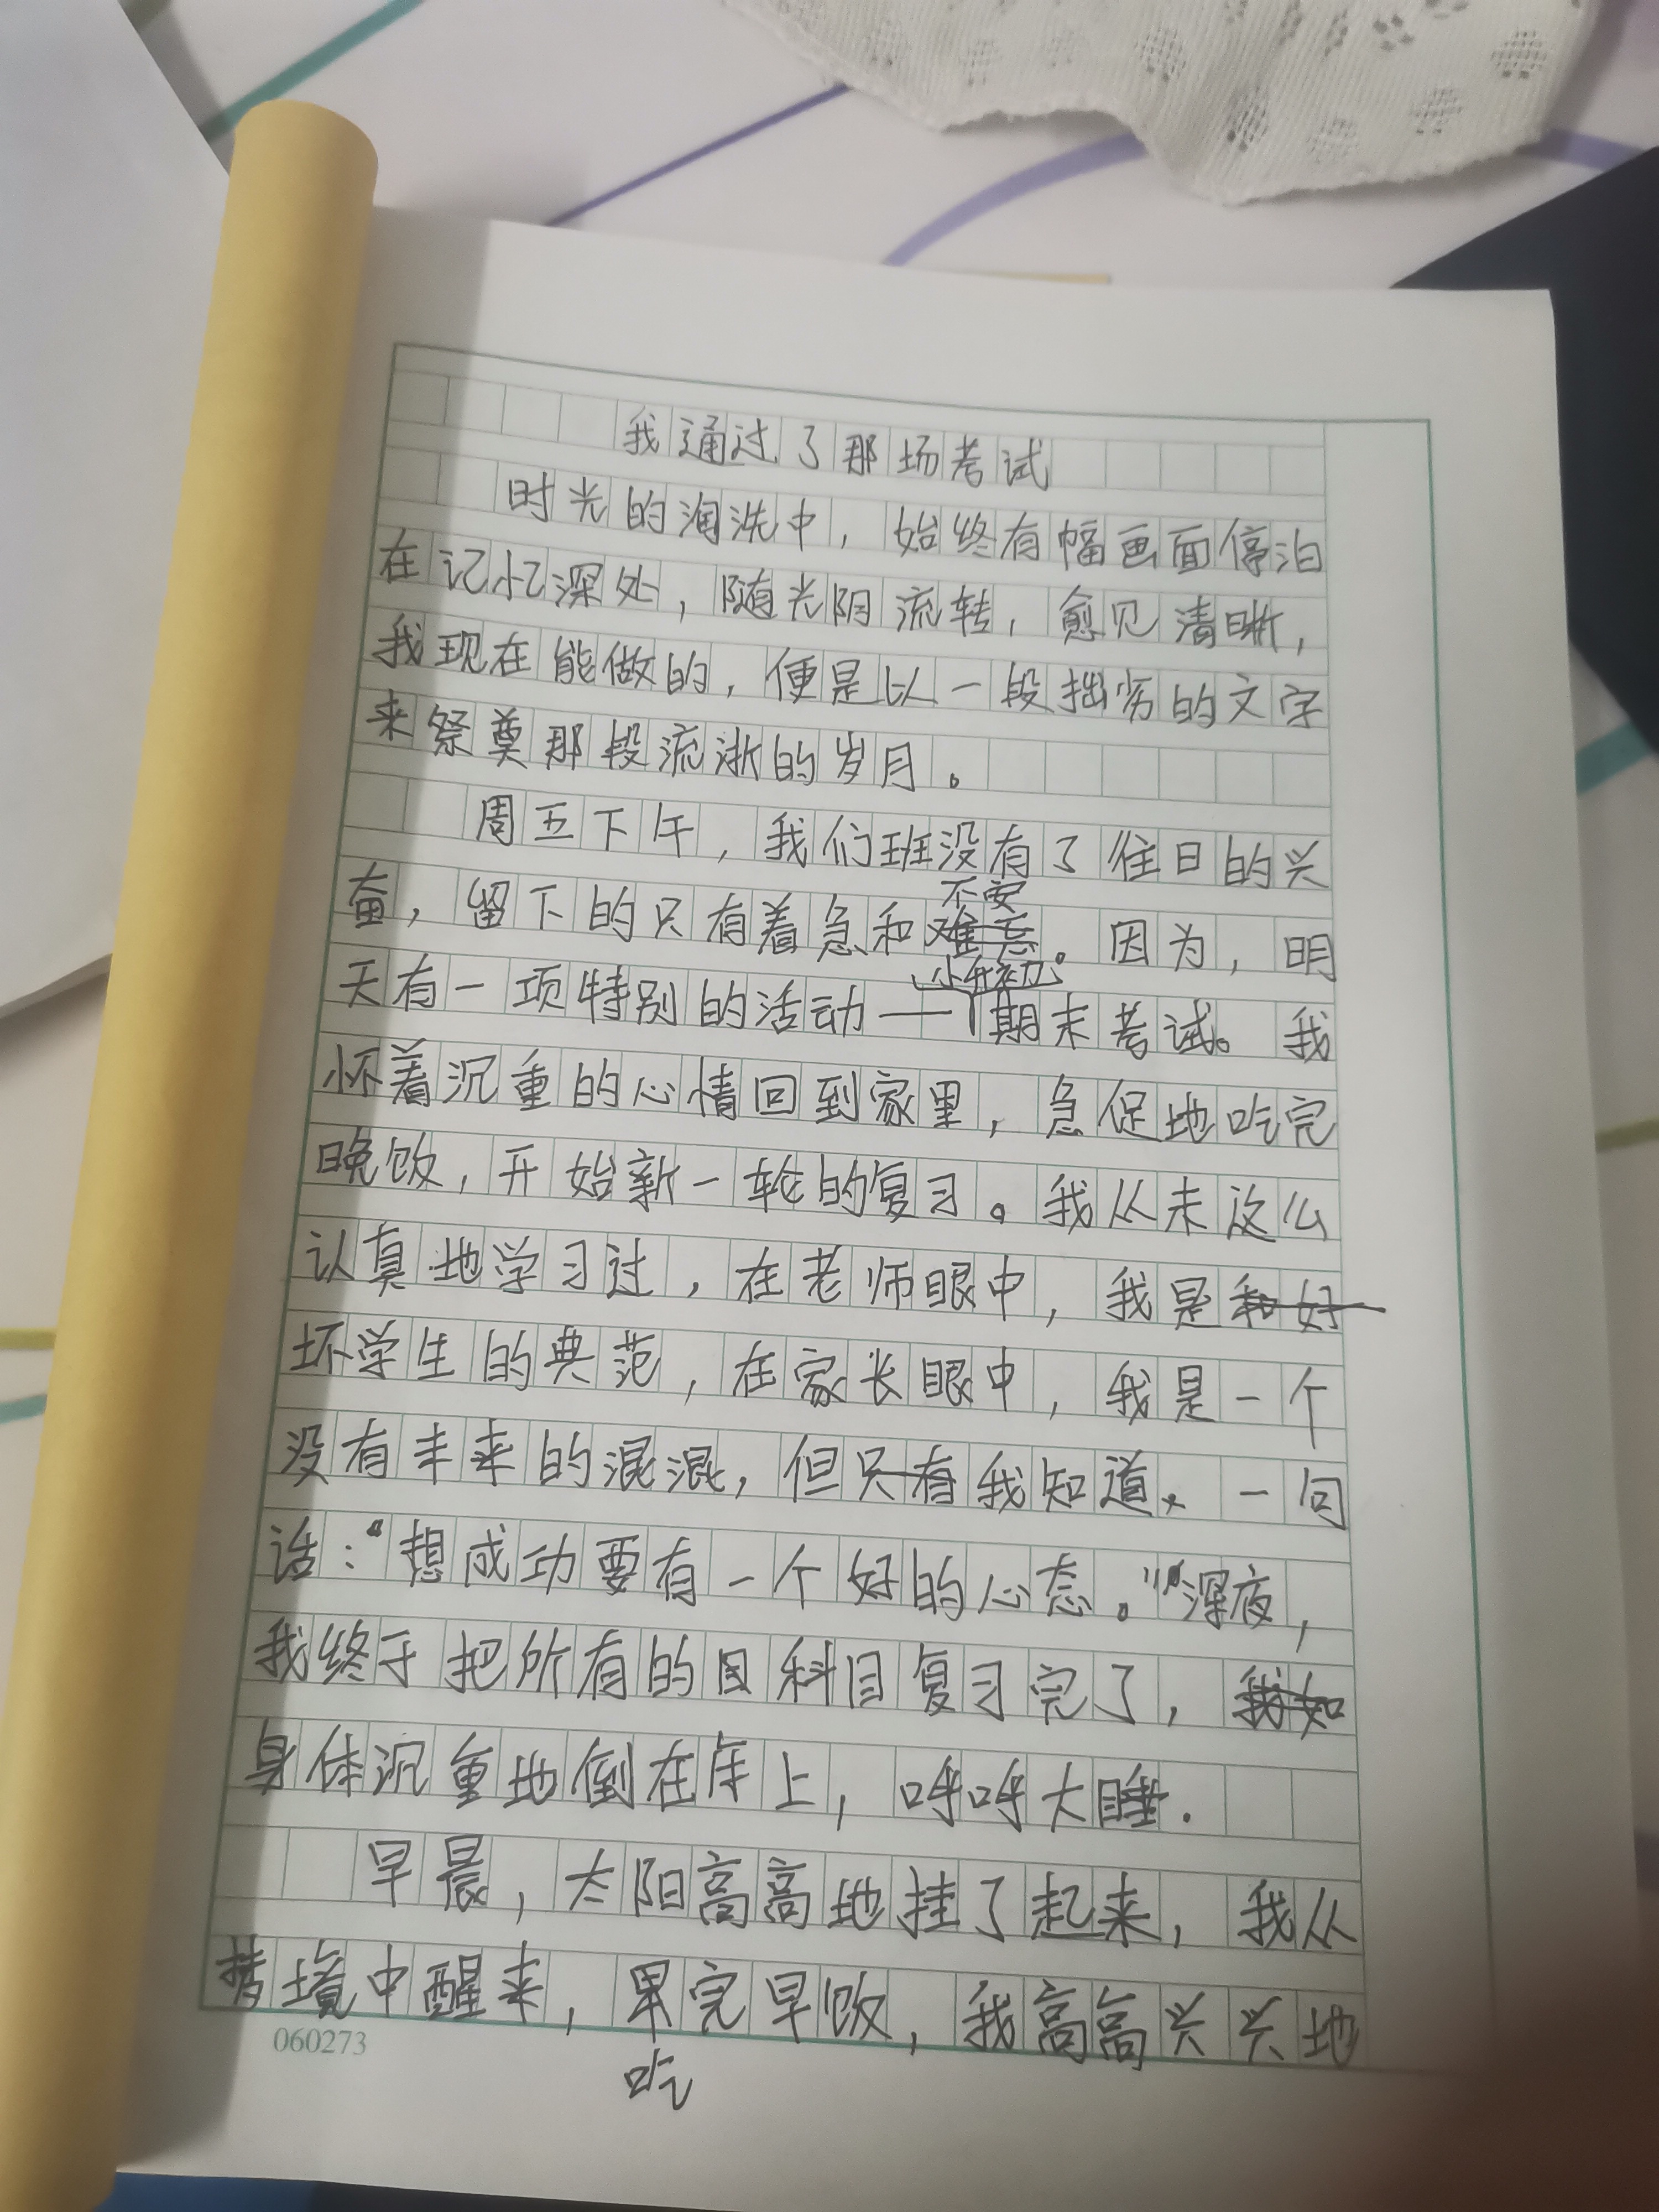 我通过了那场考试
时光的淘洗中，始终有幅画面停泊
在记忆深处，随光阴流转，愈见清晰，
我现在能做的，便是以一段拙劣的文字
来祭奠那段流浙的岁月。
周五下午，我们班没有了往日的兴
不安
奋，留下的只有着急和难忘。因为，明
小升初
天有一项特别的活动——期末考试。我
怀着沉重的心情回到家里，急促地吃完
晚饭，开始新一轮的复习。我从未这么
认真地学习过，在老师眼中，我是和好
坏学生的典范，在家长眼中，我是一个
没有未来的混混，但只有我知道，一句
话：“想成功要有一个好的心态。”深夜，
我终于把所有的目科目复习完了，我如
身体沉重地倒在床上，呼呼大睡.
早晨，太阳高高地挂了起来，我从
梦境中醒来，完早饭，我高高兴兴地
吃
060273